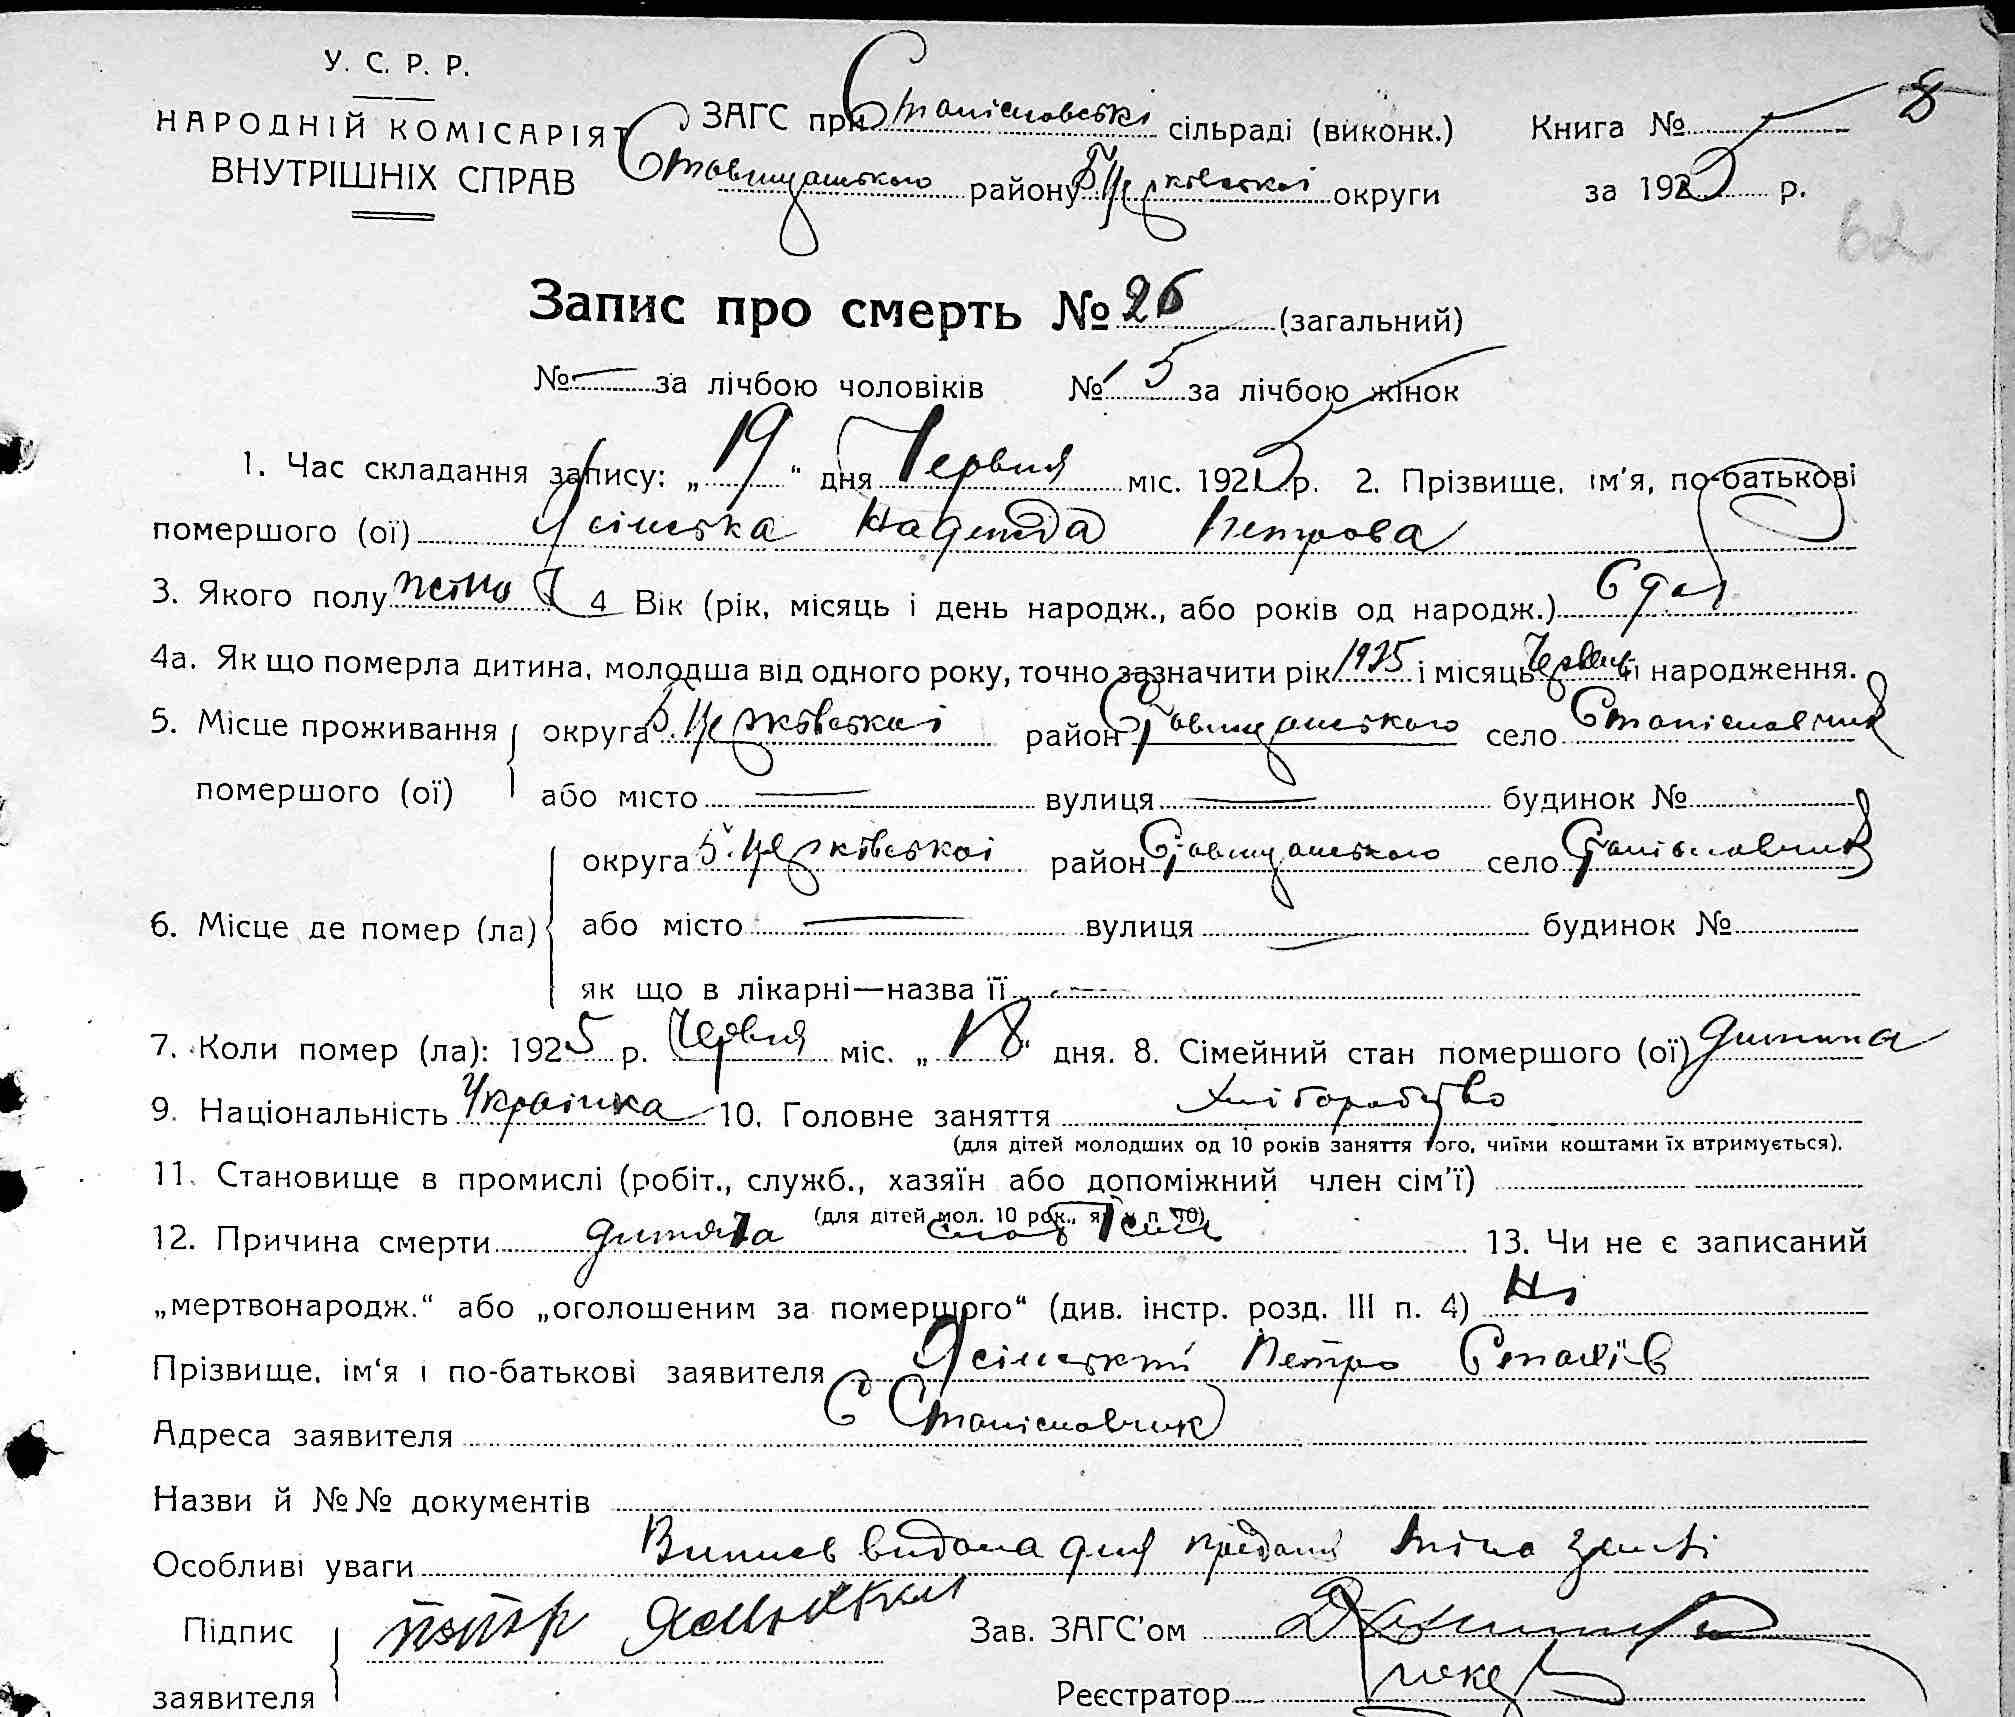 У. С. Р. Р.
НАРОДНІЙ КОМІСАРІЯТ
ВНУТРІШНІХ СПРАВ
ЗАГС при Станіславські сільраді (виконк.) Книга № 8
Ставищанського району Б. Церківської округи за 1925 р.
62
Запис про смерть № 26 (загальний)
№ — за лічбою чоловіків № 15 за лічбою жінок
1. Час складання запису: „19“ дня Червня міс. 1925 р. 2. Прізвище, ім'я, по-батькові
помершого (ої) Ясінська Надежда Петрова
3. Якого полу жіно 4 Вік (рік, місяць і день народж., або років од народж.) 6 дней
4а. Як що померла дитина, молодша від одного року, точно зазначити рік 1925 і місяць Червень її народження.
5. Місце проживання помершого (ої) округа Б. Церківської район Ставищанського село Станіславчик
або місто — вулиця — будинок №
6. Місце де помер (ла) округа Б. Церківської район Ставищанського село Станіславчик
або місто — вулиця — будинок №
як що в лікарні—назва її —
7. Коли помер (ла): 1925 р. Червня міс. „18“ дня. 8. Сімейний стан помершого (ої) дитина
9. Національність Украінка 10. Головне заняття Хліборобство
(для дітей молодших од 10 років заняття того, чиїми коштами їх втримується).
11. Становище в промислі (робіт., служб., хазяїн або допоміжний член сім'ї)
(для дітей мол. 10 рок., як у п. 10)
12. Причина смерти дитяча 13. Чи не є записаний
„мертвонародж.“ або „оголошеним за помершого“ (див. інстр. розд. III п. 4) Ні
Прізвище, ім'я і по-батькові заявителя Ясінський Петро
Адреса заявителя С Станіславчик
Назви й №№ документів
Особливі уваги Випись видана для предания тіла землі
Підпис заявителя
Зав. ЗАГС'ом
Реєстратор